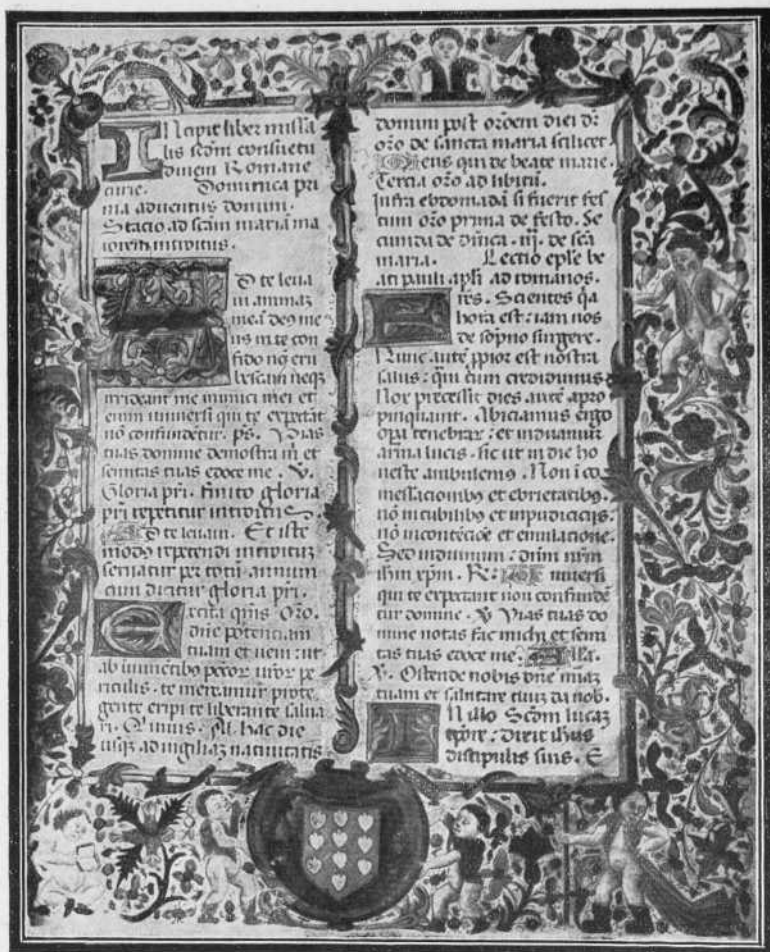 INcipit liber missa
lis scdm consuetu
dinem Romane
curie. Dominica pri
ma adventus domini.
Stacio ad scam mariã ma
iorem introitus.
AD te leva
vi animaz
meã deus me
us in te con
fido nõ eru
bescam neqz
irrideant me inimici mei et
enim universi qui te expectãt
nõ confundẽtur. ps. Vias
tuas domine demostra m et
semitas tuas edoce me. V.
Gloria pri. finito gloria
pri repetitur introitus.
AD te levavi. Et iste
modus repetendi introituz
servatur per totũ annum
cum dicitur gloria pri.
Excita qms Oro.
dñe potentiam
tuam et veni: ut
ab imminẽtibus pctor nror pe
riculis. te mereamur prote
gente eripi te liberante salva
ri. Qui vivis. Ab hac die
usqz ad vigiliaz nativitatis
domini post ordem diei dr
oro de sancta maria scilicet
Deus qui de beate marie.
Tercia oro ad libitũ.
Infra ebdomadã si fuerit fes
tum oro prima de festo. Se
cunda de dñica. iij. de scã
maria. Lectio eple be
ati pauli apli ad romanos.
Fres. Scientes qa
hora est: iam nos
de sopno surgere.
Nunc autẽ ppior est nostra
salus: qui cum credidimus
Nox precessit dies autẽ apro
pinquavit. Abiciamus ergo
opa tenebrar: et induamur
arma lucis. sic ut in die ho
neste ambulemus. Non i co
messacionibus et ebrietatibus.
nõ in cubilibus et inpudicicijs.
nõ incontẽcioẽ et emulacione.
Sed induimini: dnm nrm
ihm xpm. R: Universi
qui te expectant non confundẽ
tur domine. V Vias tuas do
mine notas fac michi et semi
tas tuas edoce me: Alla.
V. Ostende nobis dne miaz
tuam et salutare tuuz da nob.
IN illo Scdm lucaz
tpore: dixit ihus
discipulis suis. E